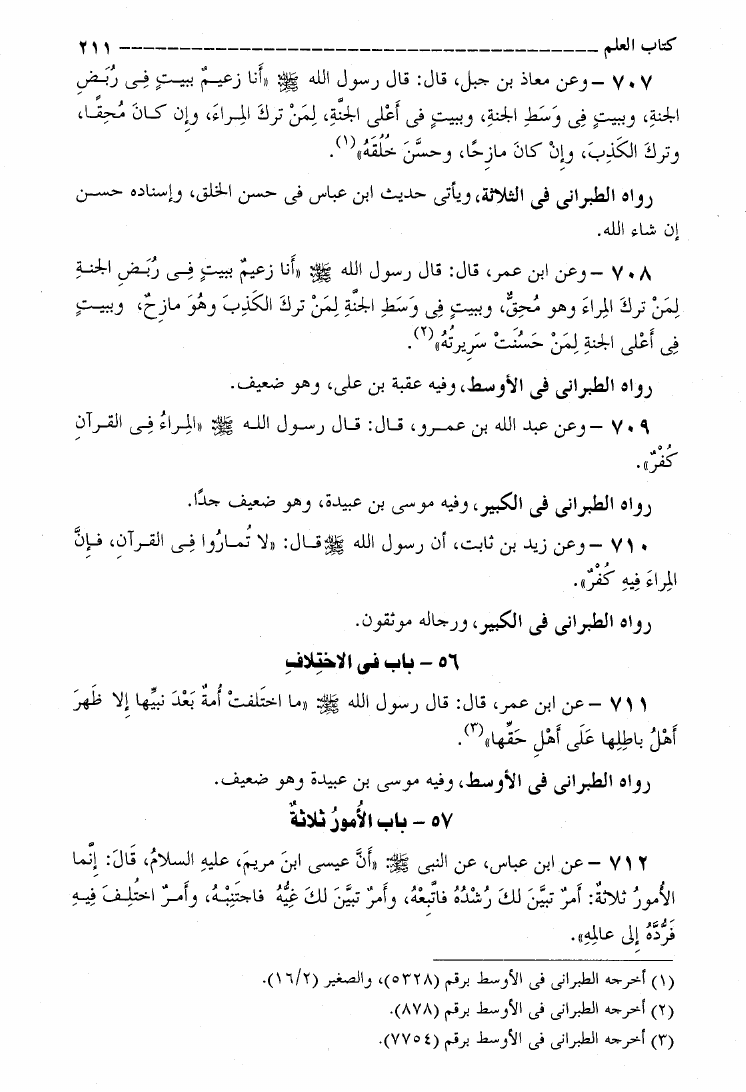 كتاب العلم ــــــــــــــــــــــــــــــــــــــــ ٢١١
٧٠٧ – وعن معاذ بن جبل، قال: قال رسول الله ﷺ «أنا زعيمٌ ببيتٍ فِى رُبَضِ
الجنةِ، وببيتٍ فِى وَسَطِ الجنةِ، وببيتٍ فى أَعْلى الجنَّةِ، لِمَنْ تركَ المِراءَ، وإن كانَ مُحِقًا،
وتركَ الكَذِبَ، وإنْ كانَ مازِحًا، وحسَّنَ خُلُقَهُ»(١).
رواه الطبرانى فى الثلاثة، ويأتى حديث ابن عباس فى حسن الخلق، وإسناده حسن
إن شاء الله.
٧٠٨ – وعن ابن عمر، قال: قال رسول الله ﷺ «أَنا زعيمٌ ببيتٍ فِى رُبَضِ الجنةِ
لِمَنْ تركَ المِراءَ وهو مُحِقٌّ، وببيتٍ فِى وَسَطِ الجنَّةِ لِمَنْ تركَ الكَذِبَ وهُوَ مازِحٌ، وببيتٍ
فِى أَعْلى الجنةِ لِمَنْ حَسُنَتْ سَرِيرتُهُ»(٢).
رواه الطبرانى فى الأوسط، وفيه عقبة بن على، وهو ضعيف.
٧٠٩ – وعن عبد الله بن عمرو، قال: قال رسول الله ﷺ «المِراءُ فِى القرآنِ
كُفْرٌ».
رواه الطبرانى فى الكبير، وفيه موسى بن عبيدة، وهو ضعيف جدًا.
٧١٠ – وعن زيد بن ثابت، أن رسول الله ﷺ قال: «لا تُمارُوا فِى القرآنِ، فإنَّ
المِراءَ فِيهِ كُفْرٌ».
رواه الطبرانى فى الكبير، ورجاله موثقون.
٥٦ – باب فى الاختِلافِ
٧١١ – عن ابن عمر، قال: قال رسول الله ﷺ «ما اختَلفتْ أُمةٌ بَعْدَ نبيِّها إلا ظَهَرَ
أَهْلُ باطِلِها عَلَى أَهْلِ حَقِّها»(٣).
رواه الطبرانى فى الأوسط، وفيه موسى بن عبيدة وهو ضعيف.
٥٧ – باب الأُمورُ ثلاثةٌ
٧١٢ – عن ابن عباس، عن النبى ﷺ: «أَنَّ عيسى ابنَ مريمَ، عليهِ السلامُ، قَالَ: إنَّما
الأُمورُ ثلاثةٌ: أَمرٌ تبيَّنَ لكَ رُشْدُهُ فاتَّبِعْهُ، وأَمرٌ تبيَّنَ لكَ غَيُّهُ فاجتَنِبْهُ، وأَمرٌ اختُلِفَ فِيهِ
فَرُدَّهُ إلى عالمِهِ».
(١) أخرجه الطبرانى فى الأوسط برقم (٥٣٢٨)، والصغير (١٦/٢).
(٢) أخرجه الطبرانى فى الأوسط برقم (٨٧٨).
(٣) أخرجه الطبرانى فى الأوسط برقم (٧٧٥٤).